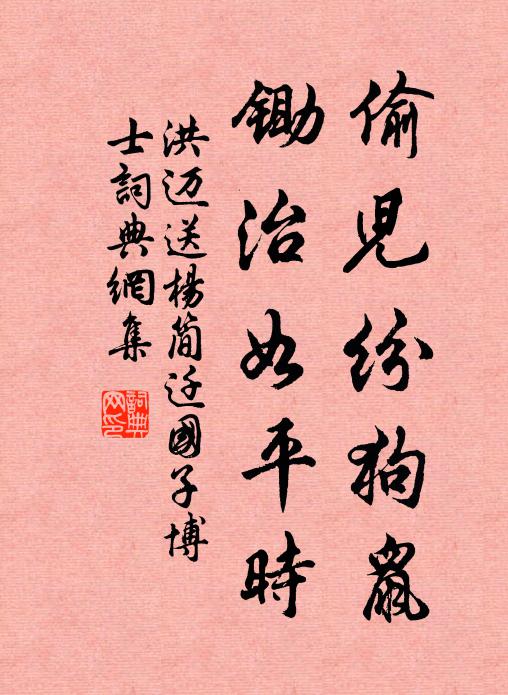 偷児紛狗鼠
鋤治如平時
洪迈送楊簡迁國子博
士詞典網集
詞典
网印